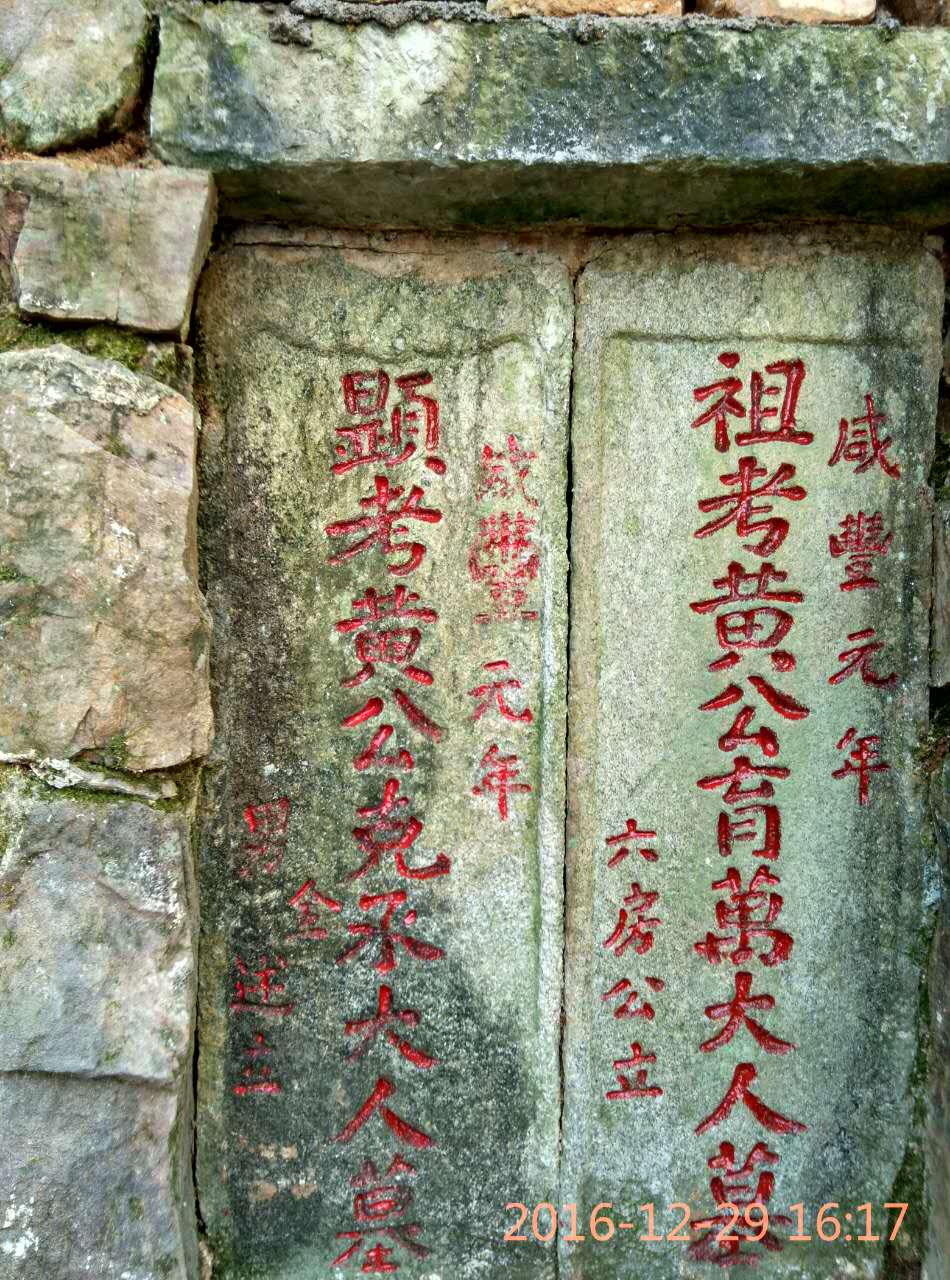 咸豐元年
祖考黃公育萬大人墓
六房公立
咸豐元年
顯考黃公克丞大人墓
男金廷立
2016-12-29 16:17